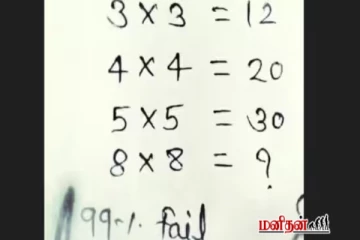 3 × 3 = 12
4 × 4 = 20
5 × 5 = 30
8 × 8 = ?
99-1. fail
மனிதன்